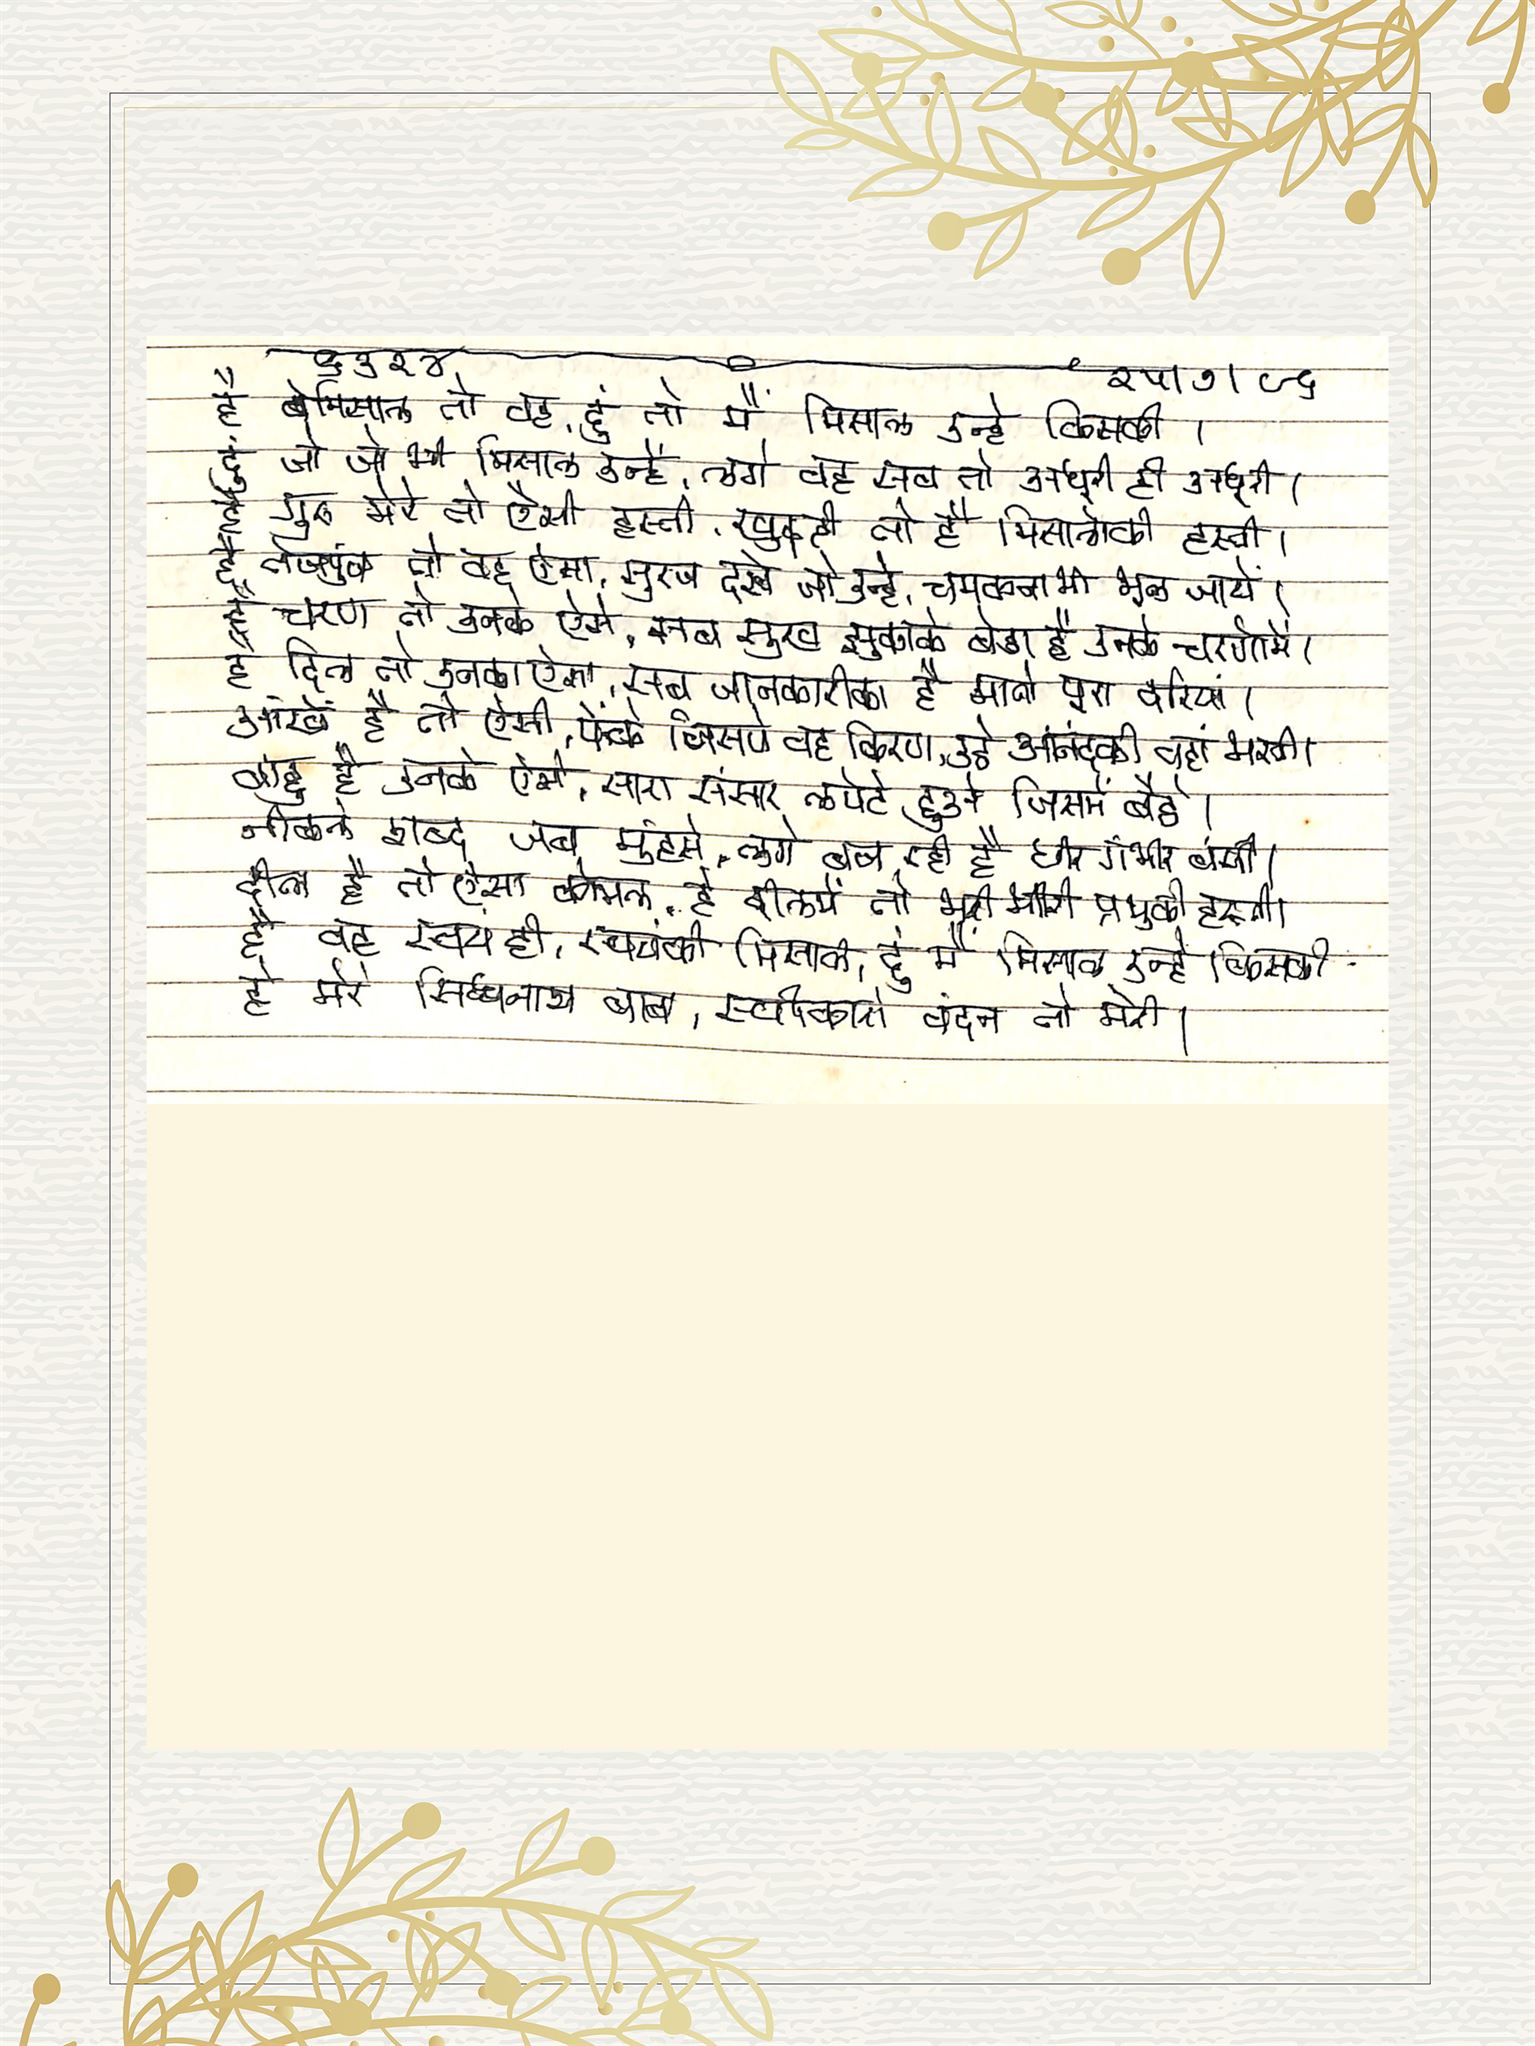 २५।७।८६
है बेमिसाल तो वह, दुं तो मैं मिसाल उन्हे किसकी ।
दुं जो जो भी मिसाल उन्हें, लगे वह सब तो अधूरी ही अधूरी ।
है गुरु मेरे तो ऐसी हस्ती, खुद ही तो है मिसालोकी हस्ती ।
है तेजपुंज तो वह ऐसा, सुरज देखे जो उन्हे, चमकना भी भूल जाये ।
है चरण तो उनके ऐसे, सब सुख झुकाके बेठा है उनके चरणोमें ।
है दिल तो उनका ऐसा, सब जानकारीका है मानो पूरा दरिया ।
आंखें है तो ऐसी, फेंके जिसपे वह किरण, उठे आनंदकी वहां मस्ती ।
बाहु है उनके ऐसे, सारा संसार लपेटे हुअे जिसमें बैठे ।
नीकले शब्द जब मुंहसे, लगे बज रही है धीर गंभीर बंसी ।
दील है तो ऐसा कोमल, है दीलमें तो भरी प्रभुकी हस्ती ।
है वह स्वयं ही, स्वयंकी मिसाल, दुं मैं मिसाल उन्हे किसकी .
हे मेरे सिध्धनाथ बाबा, स्वीकारो वंदन तो मेरी ।